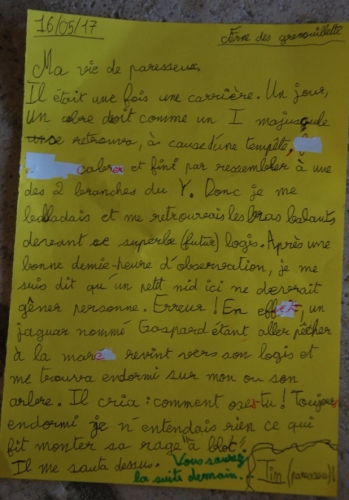 16/05/17
Ferme des grenouillette
Ma vie de paresseux,
Il était une fois une carrière. Un jour,
un arbre droit comme un I majuscule
se retrouva, à cause d'une tempête,
cabrer et fini par ressembler à une
des 2 branches du Y. Donc je me
balladais et me retrouvais les bras balants
devant ce superbe (futur) logis. Après une
bonne demie-heure d'observation, je me
suis dit qu'un petit nid ici ne devrait
gêner personne. Erreur ! En effet, un
jaguar nommé Gaspard étant aller pêcher
à la mare revint vers son logis et
me trouva endormi sur mon ou son
arbre. Il cria : comment oses-tu ! Toujours
endormi je n'entendais rien ce qui
fit monter sa rage "à bloc".
Il me sauta dessus. Vous saurez
la suite demain.
Tim (paresseux)